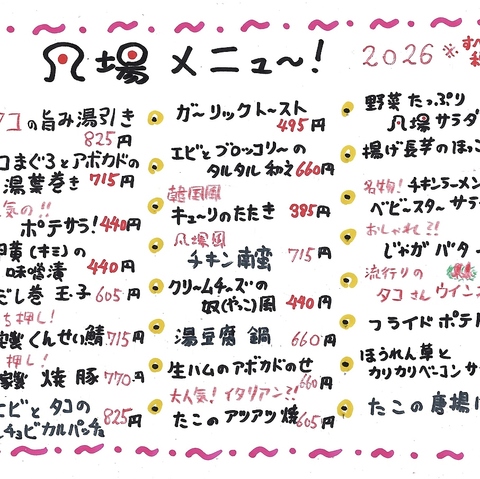 凡場メニュ〜!
2026※
タコの旨み湯引き
825円
コまぐろとアボカドの
湯葉巻き 715円
気の!!
ポテサラ! 440円
黄(キミ)の
味噌漬 440円
だし巻 玉子 605円
ち押し!
製くんせい鯖 715円
押し!
製 焼 豚 770円
エビと タコの
チョビカルパッチョ 825円
ガ〜リックト〜スト
495円
エビとブロッコリ〜の
タルタル和え 660円
韓国風
キューリのたたき 385円
凡場風
チキン南蛮 715円
クリームチ〜ズの
奴(やっこ)風 440円
湯豆腐 鍋 660円
生ハムのアボカドのせ
660円
大人気!イタリアン?!
たこの アツアツ焼 605円
野菜たっぷり
凡場 サラダ
揚げ長芋のほっこ
名物! チキンラーメン
ベビースター サラ
おしゃれ?!
じゃがバター
流行りの
タコさんウインナ
フライドポテ
ほうれん草と
カリカリベーコン サ
たこの唐揚